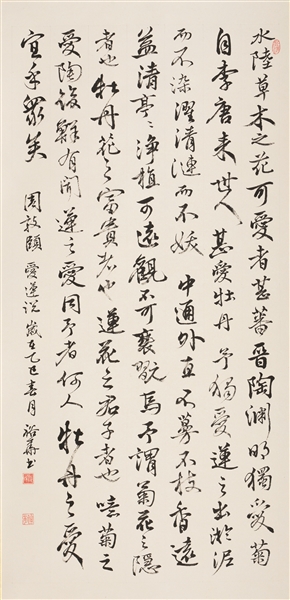 水陸草木之花可愛者甚蕃晉陶淵明獨愛菊
自李唐来世人甚愛牡丹予獨愛蓮之出淤泥
而不染濯清漣而不妖中通外直不蔓不枝香遠
益清亭〻淨植可遠觀不可褻翫焉予謂菊花之隱
者也牡丹花之富貴者也蓮花之君子者也噫菊之
愛陶後鮮有聞蓮之愛同予者何人牡丹之愛
宜乎眾矣 周敦頤愛蓮說歲在乙巳春月 裕 书